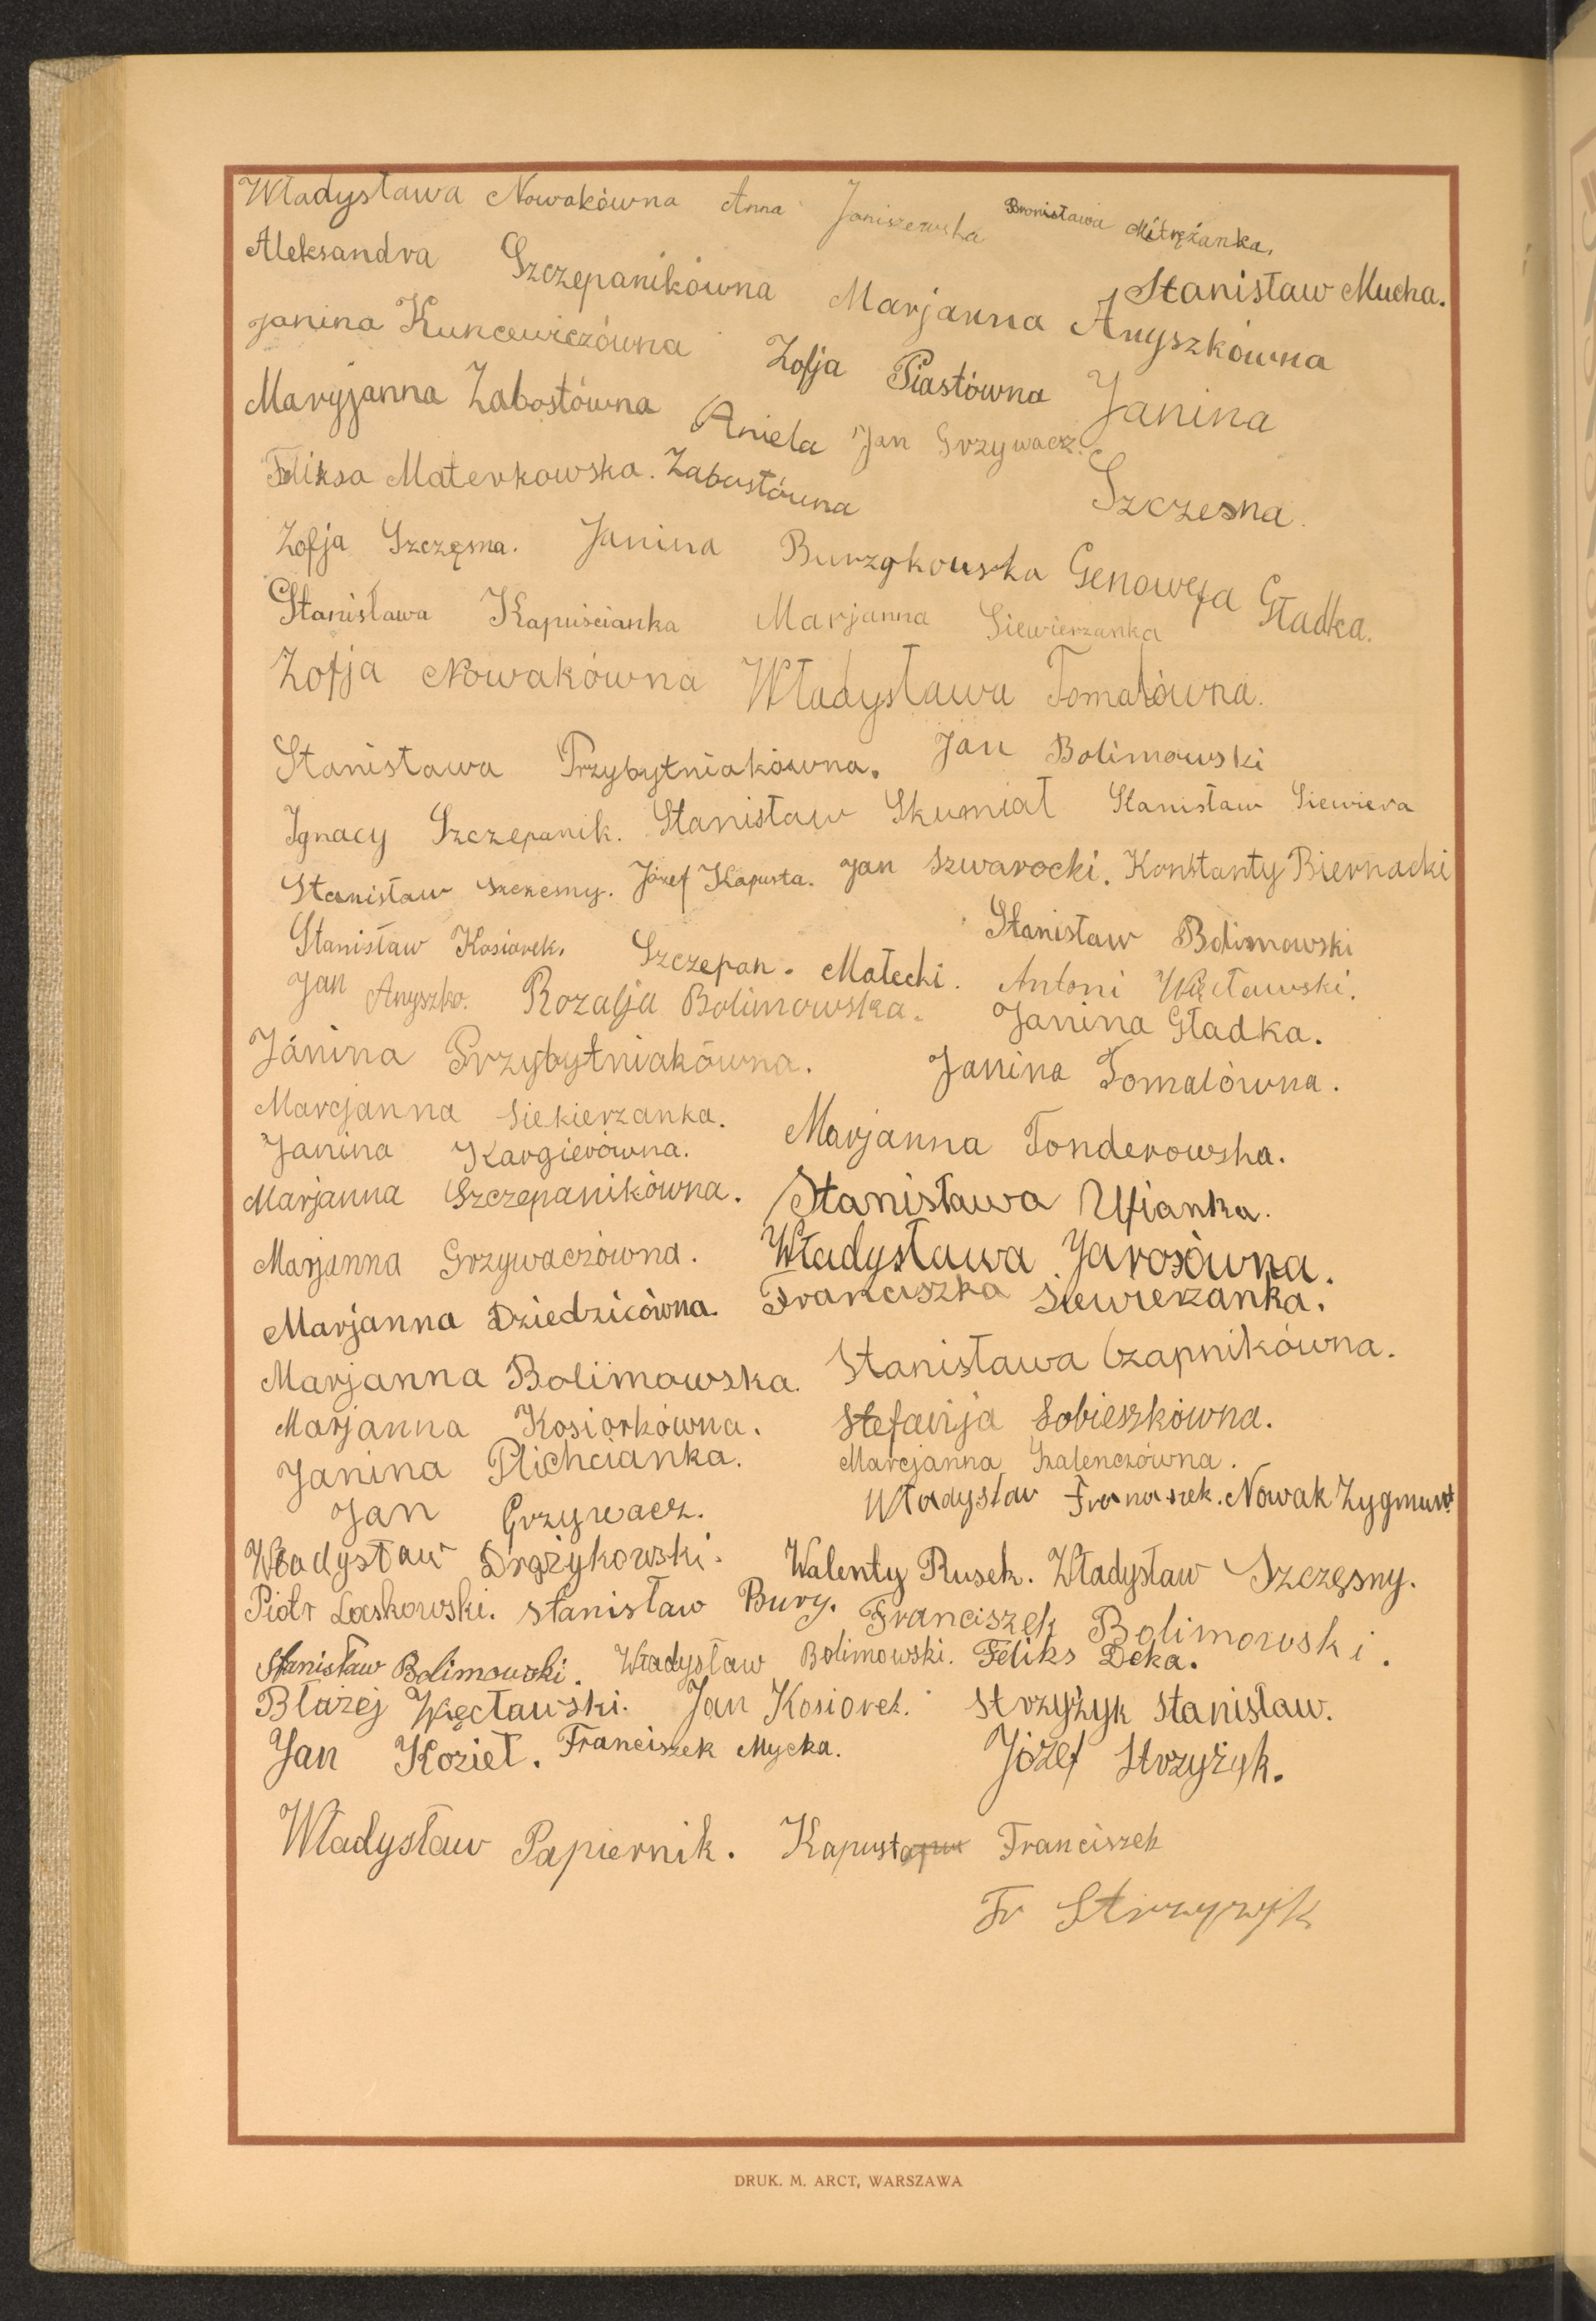 Władysława Nowakówna Anna Janiszewska Bronisława Mitrężanka.
Aleksandra Szczepanikówna Marjanna Anyszkówna Stanisław Mucha.
Janina Kuncewiczówna Zofja Piastówna Janina Szczesna.
Maryjanna Zabostówna Aniela Zabostówna Jan Grzywacz.
Feliksa Materkowska.
Zofja Szczęsna. Janina Burzykowska Genowefa Gładka.
Stanisława Kapuścianka Marjanna Siewierzanka
Zofja Nowakówna Władysława Tomalówna.
Stanisława Przybytniakówna. Jan Bolimowski
Ignacy Szczepanik. Stanisław Skumiał Stanisław Siewiera
Stanisław Szczesny. Józef Kapusta. Jan Szwarocki. Konstanty Biernacki
Stanisław Kosiorek. Szczepan. Małecki. Stanisław Bolimowski
Jan Anyszko. Rozalja Bolimowska. Antoni Więcławski.
Janina Gładka.
Jánina Przybytniakówna. Janina Tomalówna.
Marcjanna Siekierzanka.
Janina Kargierówna. Marjanna Tonderowska.
Marjanna Szczepanikówna. Stanisława Ufianka.
Marjanna Grzywaczówna. Władysława Jarosówna.
Marjanna Dziedzicówna. Franciszka Siewierzanka.
Marjanna Bolimowska. Stanisława Czapnikówna.
Marjanna Kosiorkówna. Stefanja Sobieszkówna.
Janina Plichcianka. Marcjanna Szalenczówna.
Jan Grzywacz. Władysław Franaszek. Nowak Zygmunt
Władysław Drążykowski. Walenty Rusek. Władysław Szczęsny.
Piotr Laskowski. Stanisław Bury. Franciszek Bolimowski.
Stanisław Bolimowski. Władysław Bolimowski. Feliks Deka.
Błażej Węcławski. Jan Kosiorek. Strzyżyk Stanisław.
Jan Kozieł. Franciszek Mycka. Józef Strzyżyk.
Władysław Papiernik. Kapusta Franciszek
Fr Strzyżyk
DRUK. M. ARCT, WARSZAWA